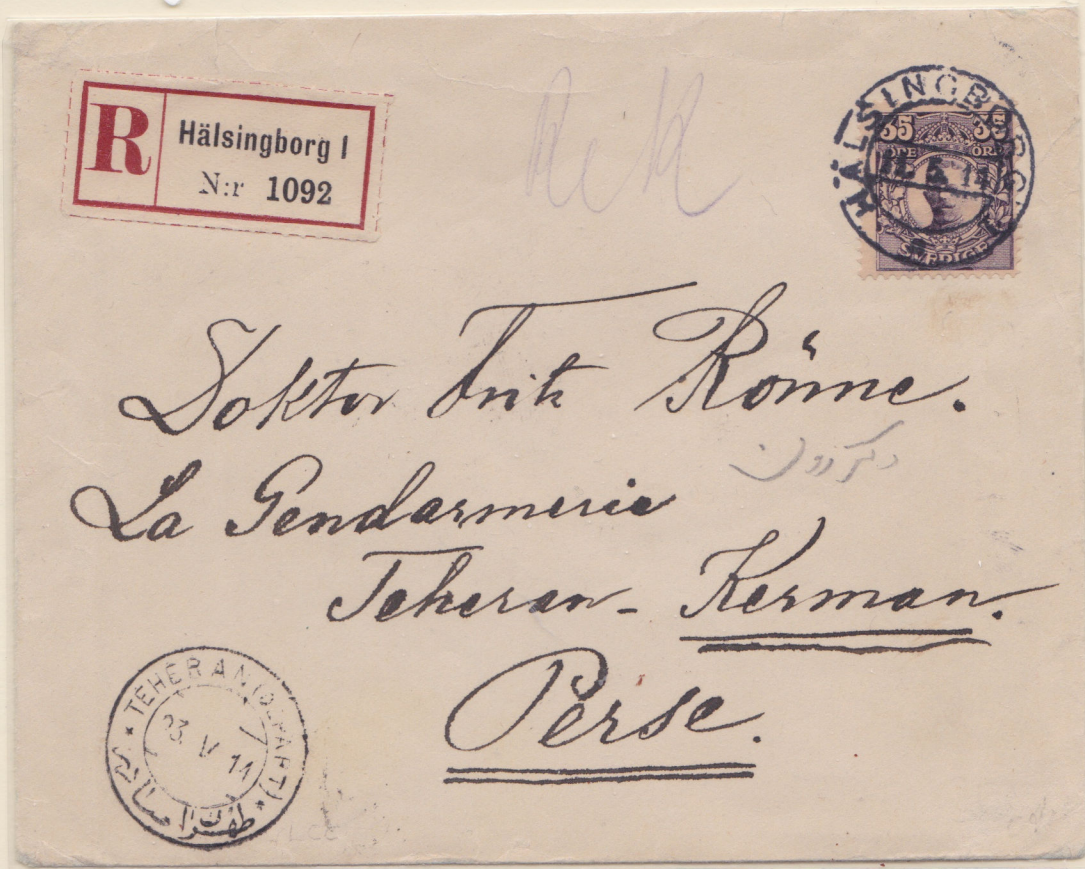 R
Hälsingborg 1
N:r 1092
Rek
HÄLSINGBORG 1
35 35
ÖRE ÖRE
11. 5. 14
SVERIGE
Doktor Fritz Rönne.
La Gendarmerie
Teheran - Kerman.
Perse.
* TEHERAN (DEPART) *
23. V 14
طهران